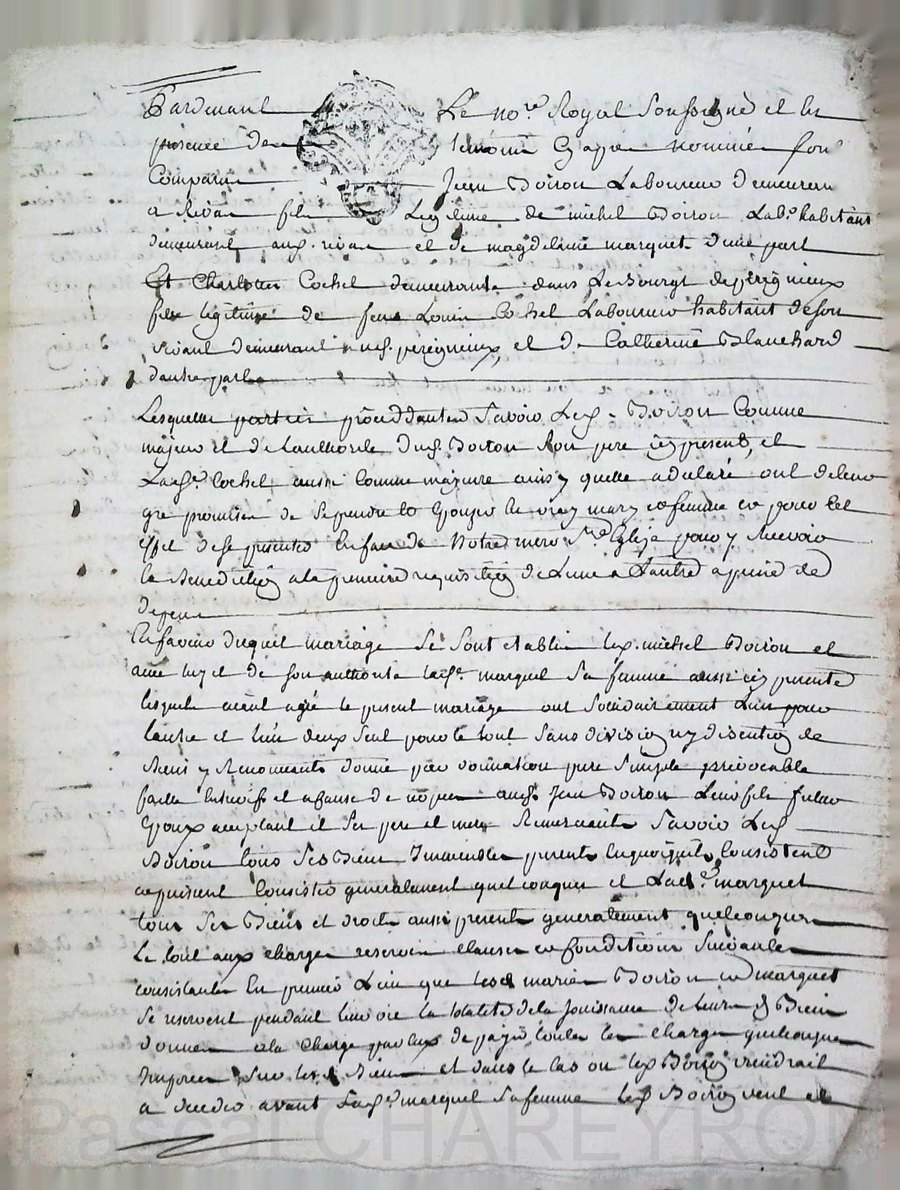 Pardevant Le no.re Royal soussigné et en
presence des temoins cy apres nommés son
Comparu Jean Boiron Laboureur demeurant
a Rivas fils Legitime de michel Boiron Lab.r habitant
demeurant aux rivas et de magdelene marquet d'une part
Et Charlotte Cochet demeurante dans Le Bourgt de perigneux
fille legitime de feus Louis Cochet Laboureur habitant de son
vivant demeurant perigneux, et de Catherine Blanchard
dautre part
Lesquelles parties procedantes Savoir Led. Boiron Comme
majeur et de Lauthorité dud. Boiron son pere icy present, et
Lad. Cochet aussi Comme majeure ainsy quelle a declaré ont de leur
gré promis de se prendre et Epouser en vray mary et femme et pour cet
effet de se presenter en face de Notre mere S.te Eglize pour y recevoir
la Benediction a la premiere requisition de Lune a Lautre a peine de
depens
En faveur duquel mariage Se Sont etablis led. michel Boiron et
avec luy et de son authorité lad. marquet Sa femme aussi icy presente
lesquels ayant agréé le present mariage ont Solidairement Lun pour
lautre et lun deux Seul pour le tout Sans division ny discution de
Biens y Renoncants donné par donnation pure Simple irrevocable
faitte entre vifs et a cause de nopces aud. Jean Boiron Leur fils futur
Epoux acceptant et Ses pere et mere Remerciant Savoir Led.
Boiron tous Ses Biens Immeubles presents en quoy quils Consistent
et puissent Consister generalement quelconques et Lad. marquet
tous Ses Biens et droits aussi presents generalement quelconques
Le tout aux charges reserves clauses et Conditions Suivantes
consistantes En premier Lieu que lesd. mariés Boiron et marquet
Se reservent pendant leur vie la totalité de la Jouissance de leurs d. Biens
donnés a la Charge par eux de payer toutes les Charges quelconques
Imposées sur lesd. Biens et dans le cas ou led. Boiron viendrait
a deceder avant Lad. marquet Sa femme led. Boiron veut et
Pascal CHAREYRON